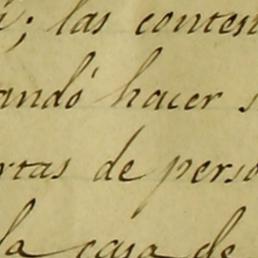 ; las conten
andó hacer s
rtas de perso
la casa de